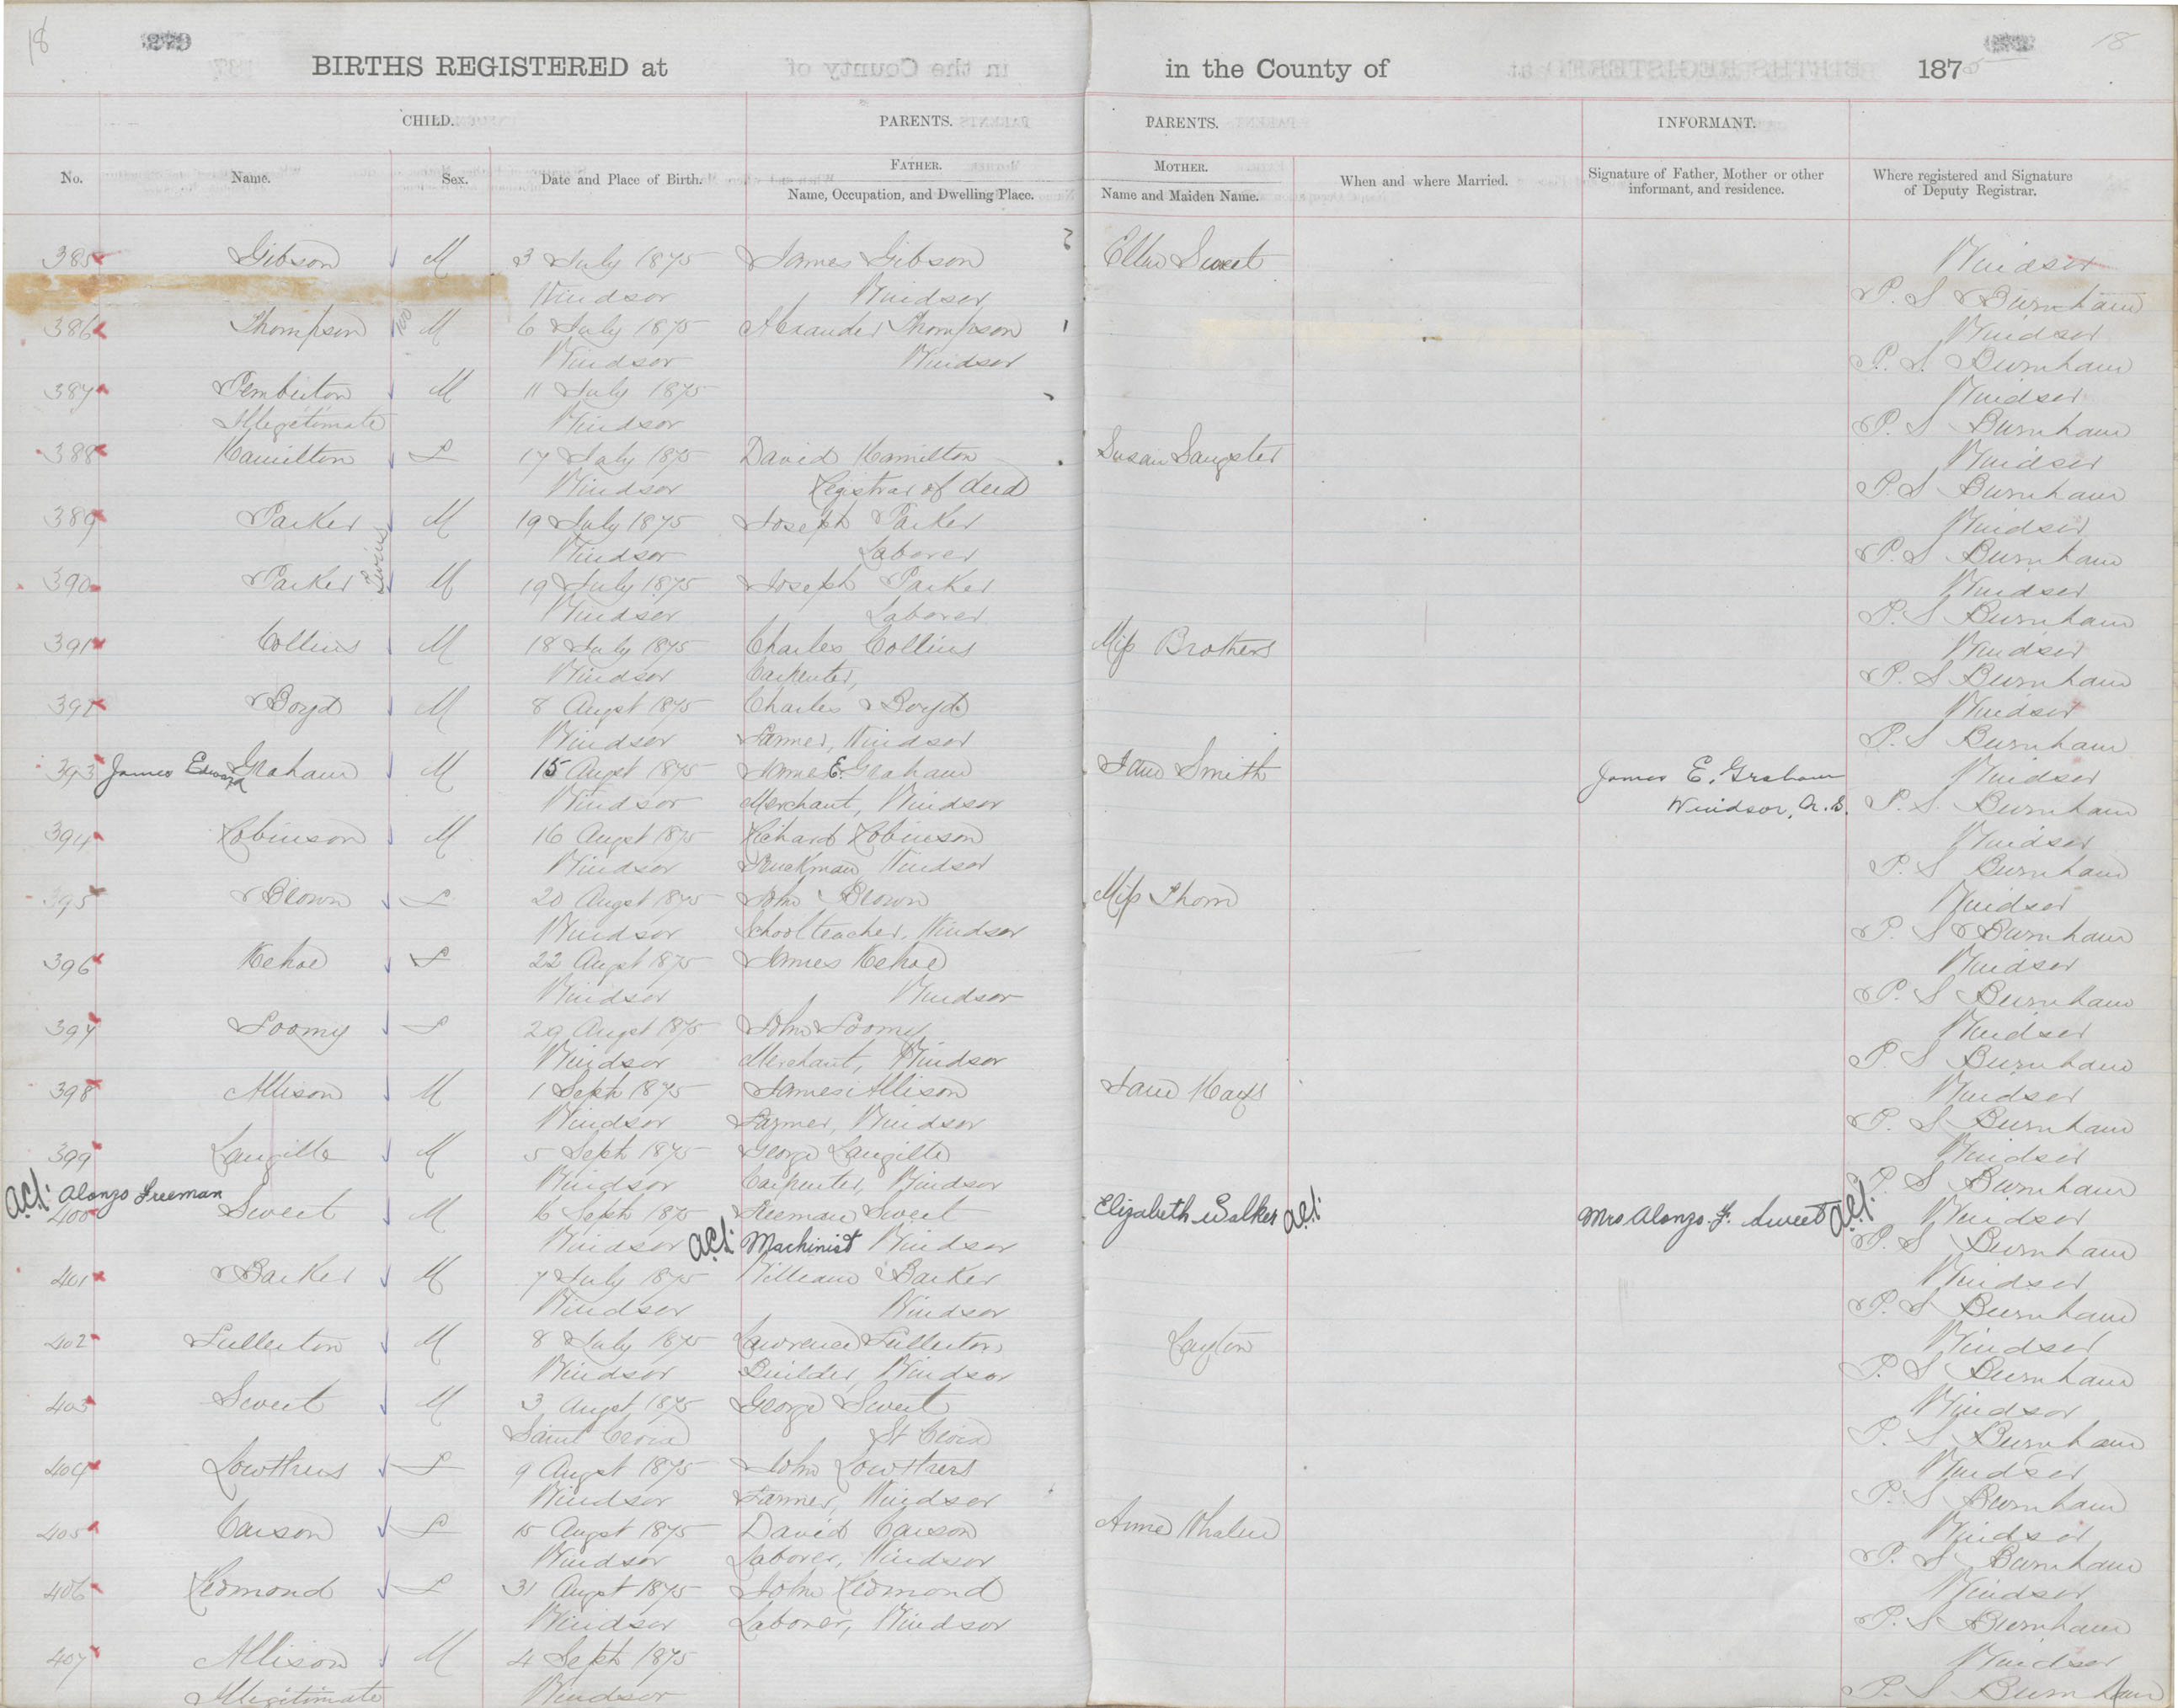 18 279 18
BIRTHS REGISTERED at in the County of 1875
CHILD. PARENTS. PARENTS. INFORMANT.
No. Name. Sex. Date and Place of Birth. FATHER. Name, Occupation, and Dwelling Place. MOTHER. Name and Maiden Name. When and where Married. Signature of Father, Mother or other informant, and residence. Where registered and Signature of Deputy Registrar.
385 Gibson M 3 July 1875 James Gibson Ellen Sweet Windsor
Windsor Windsor P. S Burnham
386 Thompson M 6 July 1875 Alexander Thompson Windsor
Windsor Windsor P. S. Burnham
387 Pemberton M 11 July 1875 Windsor
Illegitimate Windsor P. S Burnham
388 Hamilton F 17 July 1875 David Hamilton Susan Sangster Windsor
Windsor Registrar of deed P. S Burnham
389 Parker M 19 July 1875 Joseph Parker Windsor
Twins
Windsor Laborer P. S Burnham
390 Parker M 19 July 1875 Joseph Parker Windsor
Windsor Laborer P. S Burnham
391 Collins M 18 July 1875 Charles Collins Miss Brothers Windsor
Windsor Carpenter, P. S Burnham
392 Boyd M 8 Augst 1875 Charles Boyd Windsor
Windsor Farmer, Windsor P. S Burnham
393 James Edward Graham M 15 Augst 1875 James E. Graham Jane Smith James E. Graham Windsor
Windsor Merchant, Windsor Windsor, N. S. P. S. Burnham
394 Robinson M 16 Augst 1875 Richard Robinson Windsor
Windsor Truckman, Windsor P. S Burnham
395 Brown F 20 Augst 1875 John Brown Miss Thom Windsor
Windsor Schoolteacher, Windsor P. S Burnham
396 Kehoe F 22 Augst 1875 James Kehoe Windsor
Windsor Windsor P. S Burnham
397 Toomy F 29 Augst 1875 John Toomy Windsor
Windsor Merchant, Windsor P. S Burnham
398 Allison M 1 Sept 1875 James Allison Jane Hays Windsor
Windsor Farmer, Windsor P. S Burnham
399 Langille M 5 Sept 1875 George Langille Windsor
Windsor Carpenter, Windsor P. S Burnham
act: Alonzo Freeman
400 Sweet M 16 Sept 1875 Freeman Sweet Elizabeth Walker act: Mrs Alonzo F. Sweet act: Windsor
Windsor act: Machinist Windsor P. S Burnham
401 Barker M 7 July 1875 William Barker Windsor
Windsor Windsor P. S Burnham
402 Fullerton M 8 July 1875 Lawrence Fullerton Layton Windsor
Windsor Builder, Windsor P. S Burnham
403 Sweet M 3 Augst 1875 George Sweet Windsor
Saint Croix St Croix P. S Burnham
404 Lowthers F 9 Augst 1875 John Lowthers Windsor
Windsor Farmer, Windsor P. S Burnham
405 Carson F 15 Augst 1875 David Carson Anne Whalen Windsor
Windsor Laborer, Windsor P. S Burnham
406 Redmond F 31 Augst 1875 John Redmond Windsor
Windsor Laborer, Windsor P. S Burnham
407 Allison M 4 Sept 1875 Windsor
Illegitimate Windsor P. S Burnham